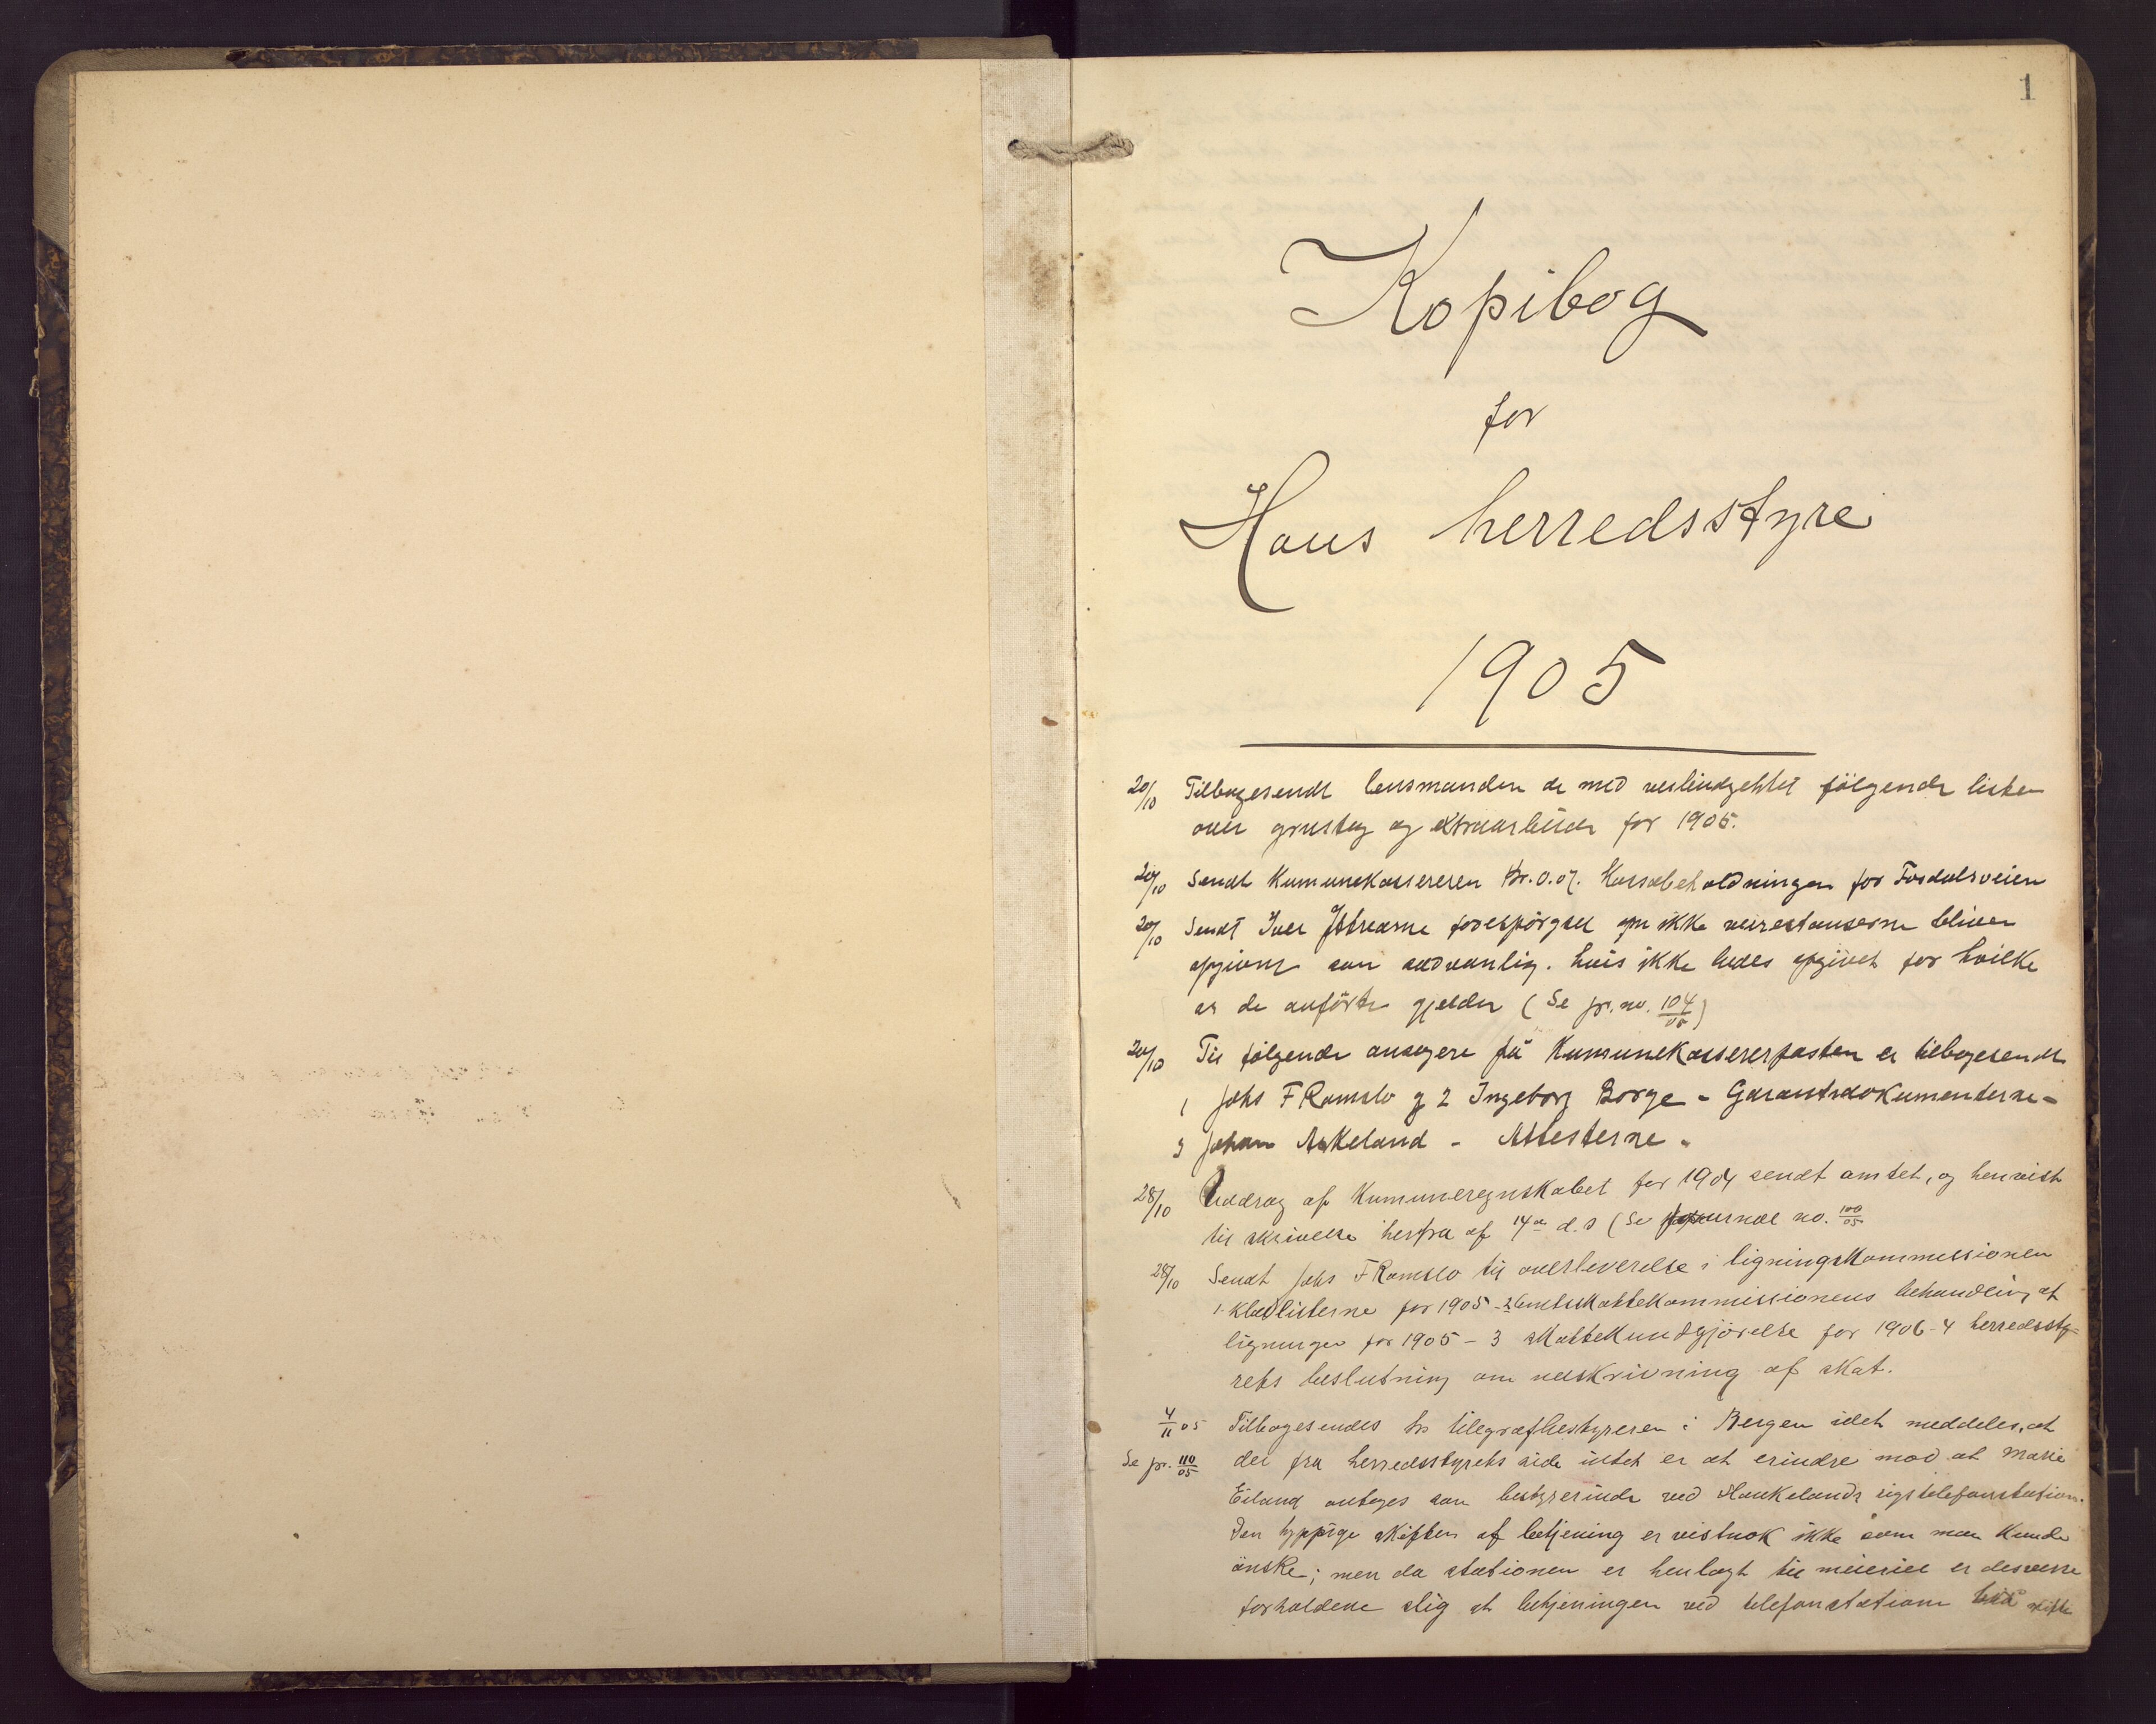 1
Kopibog
for
Haus herredsstyre
1905
20/10 Tilbagesendt lensmanden de med veilindgehtet følgende lister
over grustag og extraarbeide for 1905.
20/10 Sendt Kumunekassereren Kr. 0.07. Kassabeholdningen for Tordalsveien
20/10 Sendt Iver forespørgsel om ikke veirestanserne bliver
opgivne som sædvanlig. hvis ikke bedes opgivet for hvilke
aar de anførte gjelder (Se jr. no. 104/05)
20/10 Til følgende ansøgere på Kumunekassererposten er tilbagesendt
1 Johs F Romslo og 2 Ingeborg Borge - Garantidokumenterne -
3 Johan Askeland - Attesterne -
28/10 Uddrag af Kumuneregnskabet for 1904 sendt amtet, og henvist
til skrivelse herfra af 14de d.s (Se journal no. 100/05
28/10 Sendt Johs F Romslo til overleverelse i ligningskommissionen
1. Kladlisterne for 1905 - 2 amtsskattekommissionens behandling af
ligningen for 1905 - 3 skattekundgjørelse for 1906 - 4 herredssty-
rets beslutning om nedskrivning af skat.
4/11 05 Tilbagesendes hr telegrafbestyreren i Bergen idet meddeles, at
Se jr. 110/05 der fra herredsstyrets side intet er at erindre mod at Marie
Eiland antages som bestyrerinde ved Haukelands rigstelefonstation.
Den hyppige skiften af betjening er vistnok ikke som man kunde
ønske; men da stationen er henlagt til meieriet er desverre
forholdene slig at betjeningen ved telefonstationen skifte